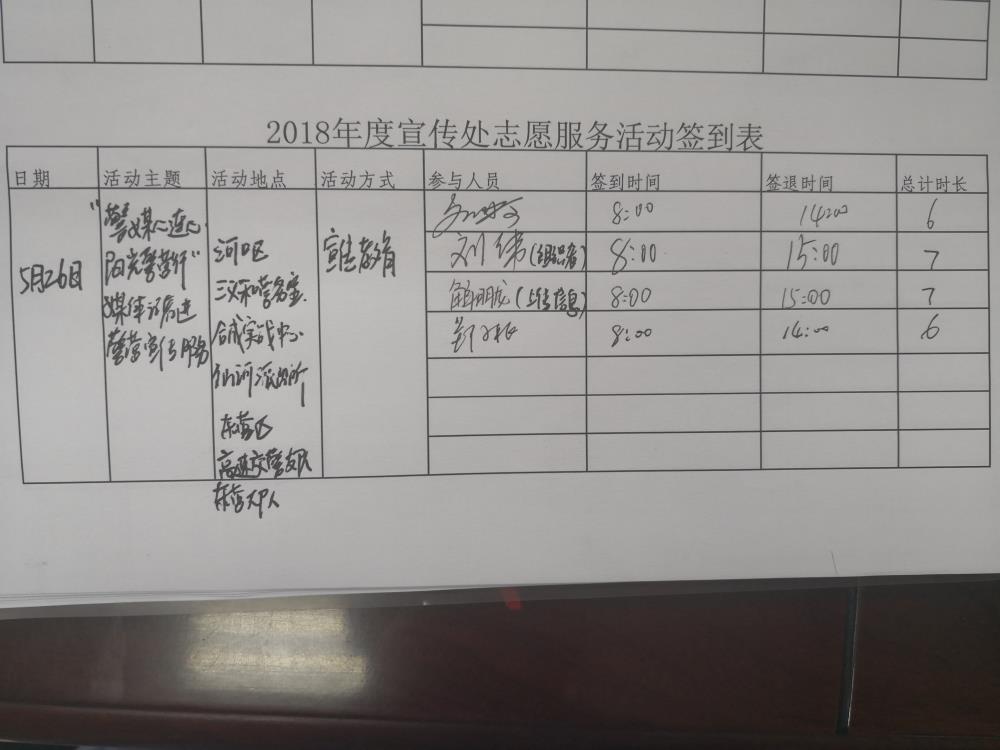 2018年度宣传处志愿服务活动签到表
日期 活动主题 活动地点 活动方式 参与人员 签到时间 签退时间 总计时长
5月26日
“警媒心连心
阳光警营行”
媒体记者走进
警营宣传服务
河口区
三义和警务室
合成实战中心
仙河派出所
东营区
高速交警支队
东营
宣传教育
8:00 14:00 6
刘伟(组织者) 8:00 15:00 7
(上传信息) 8:00 15:00 7
8:00 14:00 6